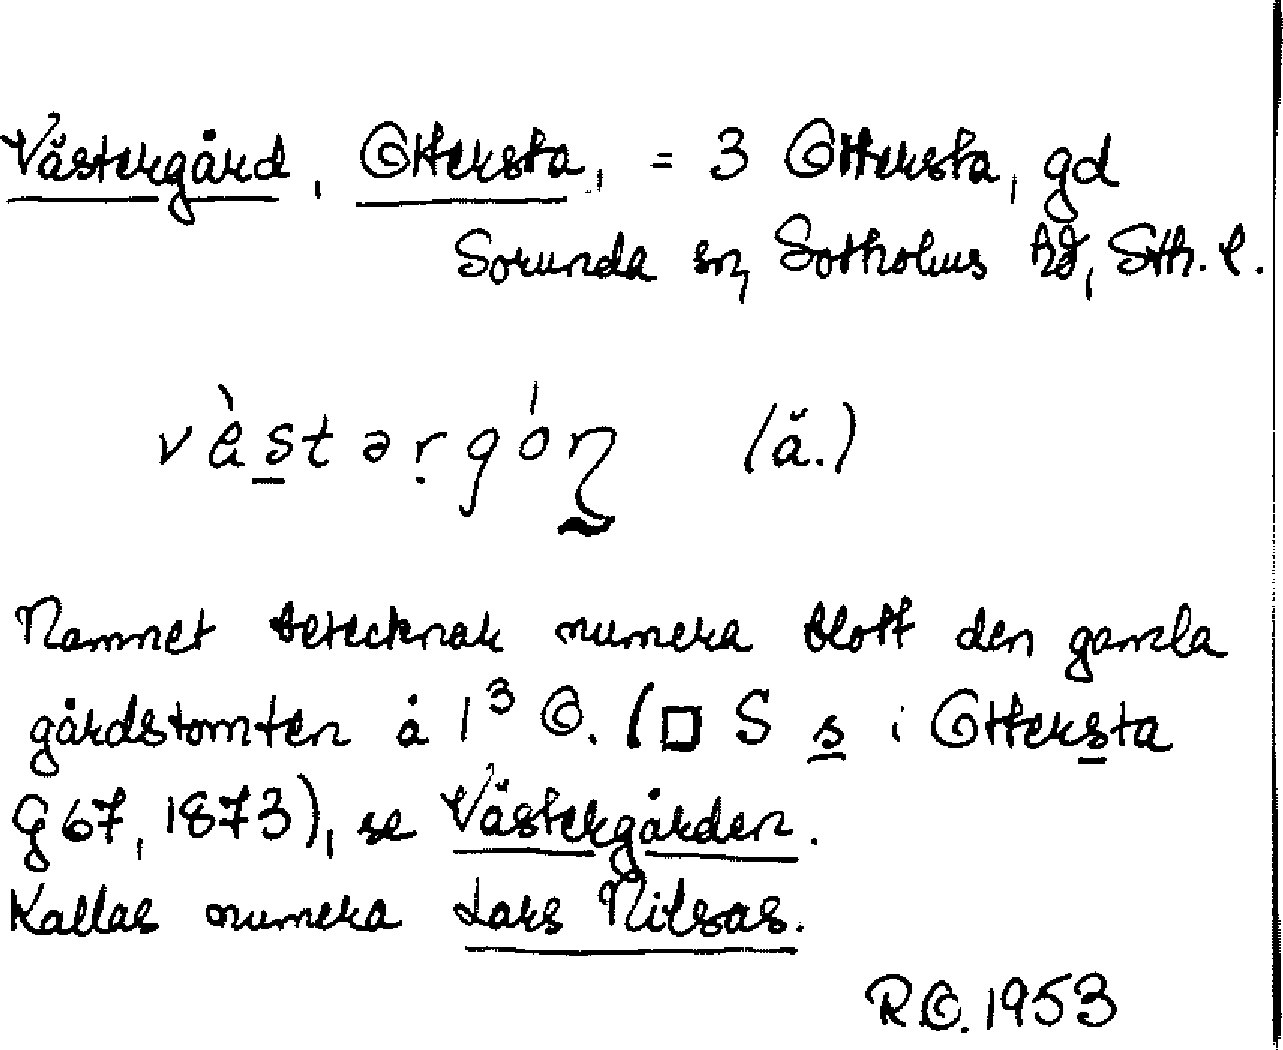 Västergård, Ottersta, = 3 Ottersta, gd
Sorunda sn, Sotholms hd, Sth. l.
vàstərgón (ă.)
Namnet betecknar numera blott den gamla
gårdstomten å 1³ O. (□ S s i Ottersta
G 67, 1873), se Västergården.
Kallas numera Lars Nilsas.
R.O. 1953